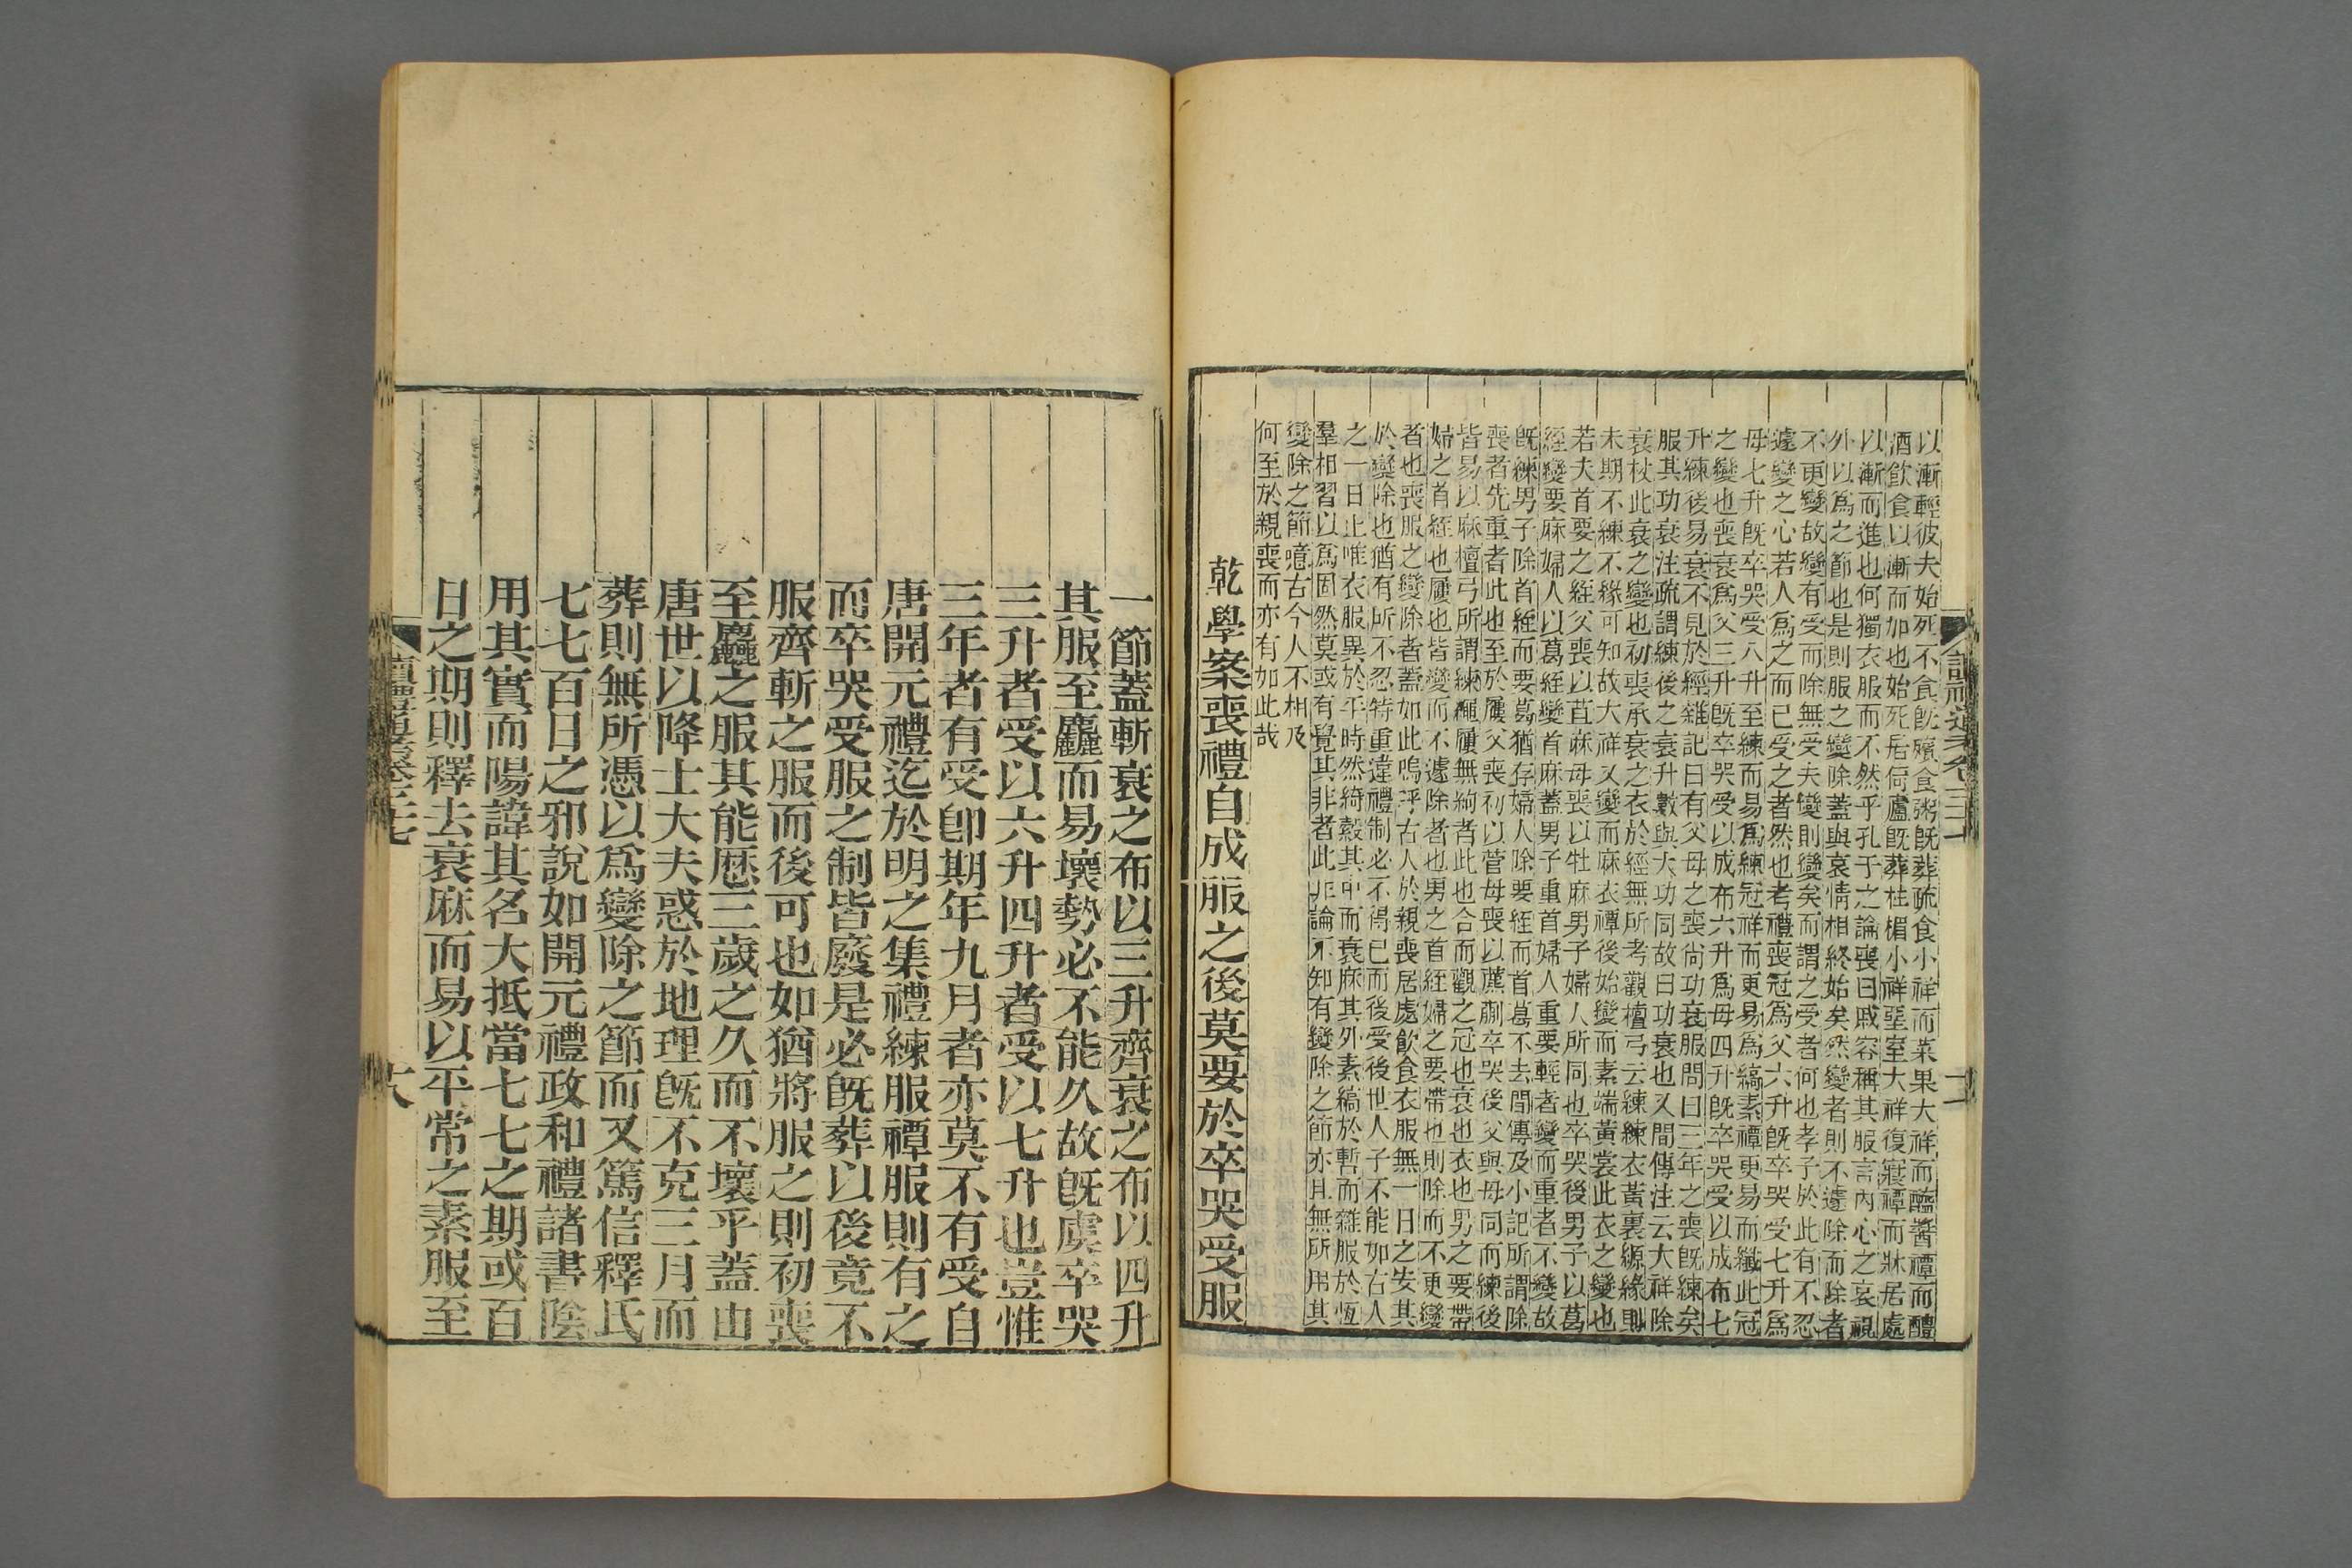 以漸輕彼夫始死不食旣殯食粥旣葬疏食小祥而菜果大祥而醯醬禫而醴
酒飮食以漸而加也始死居倚廬旣葬柱楣小祥堊室大祥復寢禫而牀居處
以漸而進也何獨衣服而不然乎孔子之論喪曰戚容稱其服言內心之哀視
外以爲之節也是則服之變除蓋與哀情相終始矣然變者則不遽除而除者
不更變故變有受而除無受夫變則變矣而謂之受者何也孝子於此有不忍
遽變之心若人爲之而已受之者然也考禮喪冠爲父六升旣卒哭受七升爲
母七升旣卒哭受八升至練而易爲練冠祥而更易爲縞素禫更易而纖此冠
之變也喪衰爲父三升旣卒哭受以成布六升爲母四升旣卒哭受以成布七
升練後易衰不見於經雜記曰有父母之喪尙功衰服問曰三年之喪旣練矣
服其功衰注疏謂練後之衰升數與大功同故曰功衰也又間傳注云大祥除
衰杖此衰之變也初喪承衰之衣於經無所考觀檀弓云練練衣黃裏縓緣則
未期不練不緣可知故大祥又變而麻衣禫後始變而素端黃裳此衣之變也
若夫首要之絰父喪以苴麻母喪以牡麻男子婦人所同也卒哭後男子以葛
絰變要麻婦人以葛絰變首麻蓋男子重首婦人重要輕者變而重者不變故
旣練男子除首絰而要葛猶存婦人除要絰而首葛不去間傳及小記所謂除
喪者先重者此也至於屨父喪初以菅母喪以薦蒯卒哭後父與母同而練後
皆易以麻檀弓所謂練繩屨無絇者此也合而觀之冠也衰也衣也男之要帶
婦之首絰也屨也皆變而不遽除者也男之首絰婦之要帶也則除而不更變
者也喪服之變除者蓋如此嗚呼古人於親喪居處飮食衣服無一日之安其
於變除也猶有所不忍特重違禮制必不得已而後受後世人子不能如古人
之一日止唯衣服異於平時然綺縠其中而衰麻其外素縞於暫而雜服於恆
羣相習以爲固然莫或有覺其非者此非論不知有變除之節亦且無所用其
變除之節噫古今人不相及
何至於親喪而亦有如此哉
乾學案喪禮自成服之後莫要於卒哭受服
一節蓋斬衰之布以三升齊衰之布以四升
其服至麤而易壞勢必不能久故旣虞卒哭
三升者受以六升四升者受以七升也豈惟
三年者有受卽期年九月者亦莫不有受自
唐開元禮迄於明之集禮練服禫服則有之
而卒哭受服之制皆廢是必旣葬以後竟不
服齊斬之服而後可也如猶將服之則初喪
至麤之服其能歷三歲之久而不壞乎蓋由
唐世以降士大夫惑於地理旣不克三月而
葬則無所憑以爲變除之節而又篤信釋氏
七七百日之邪說如開元禮政和禮諸書陰
用其實而陽諱其名大抵當七七之期或百
日之期則釋去衰麻而易以平常之素服至